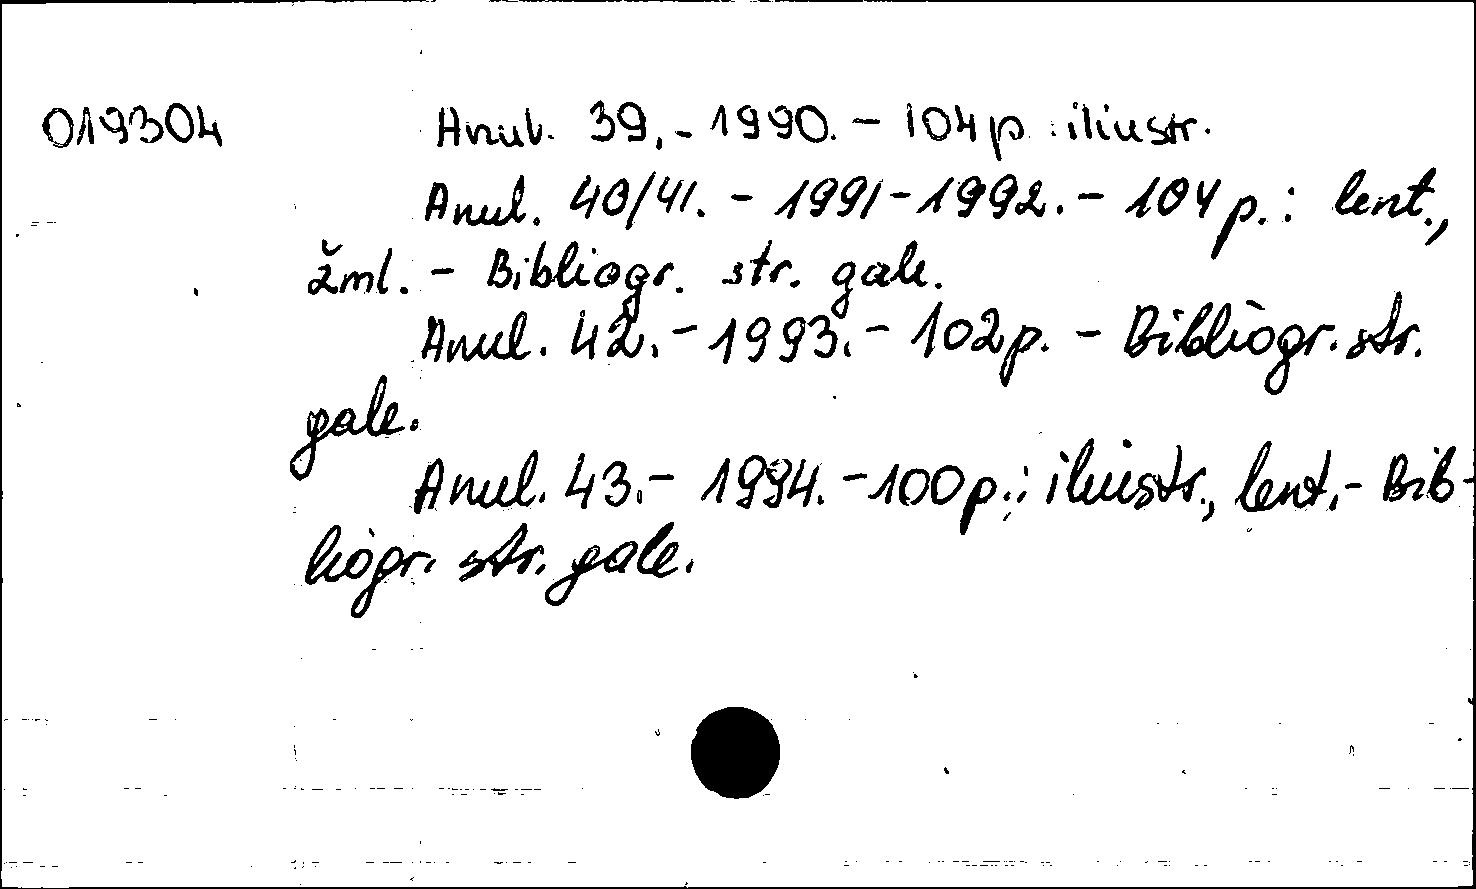 019304 Anul. 39.-1990.-104p : iliustr.
Anul. 40/41. - 1991-1992. - 104 p. : lent.,
žml. - Bibliogr. str. gale.
Anul. 42. - 1993. - 102p. - Bibliogr. str.
gale.
Anul. 43. - 1994. -100p.: iliustr., lent. - Bib-
liogr. str. gale.